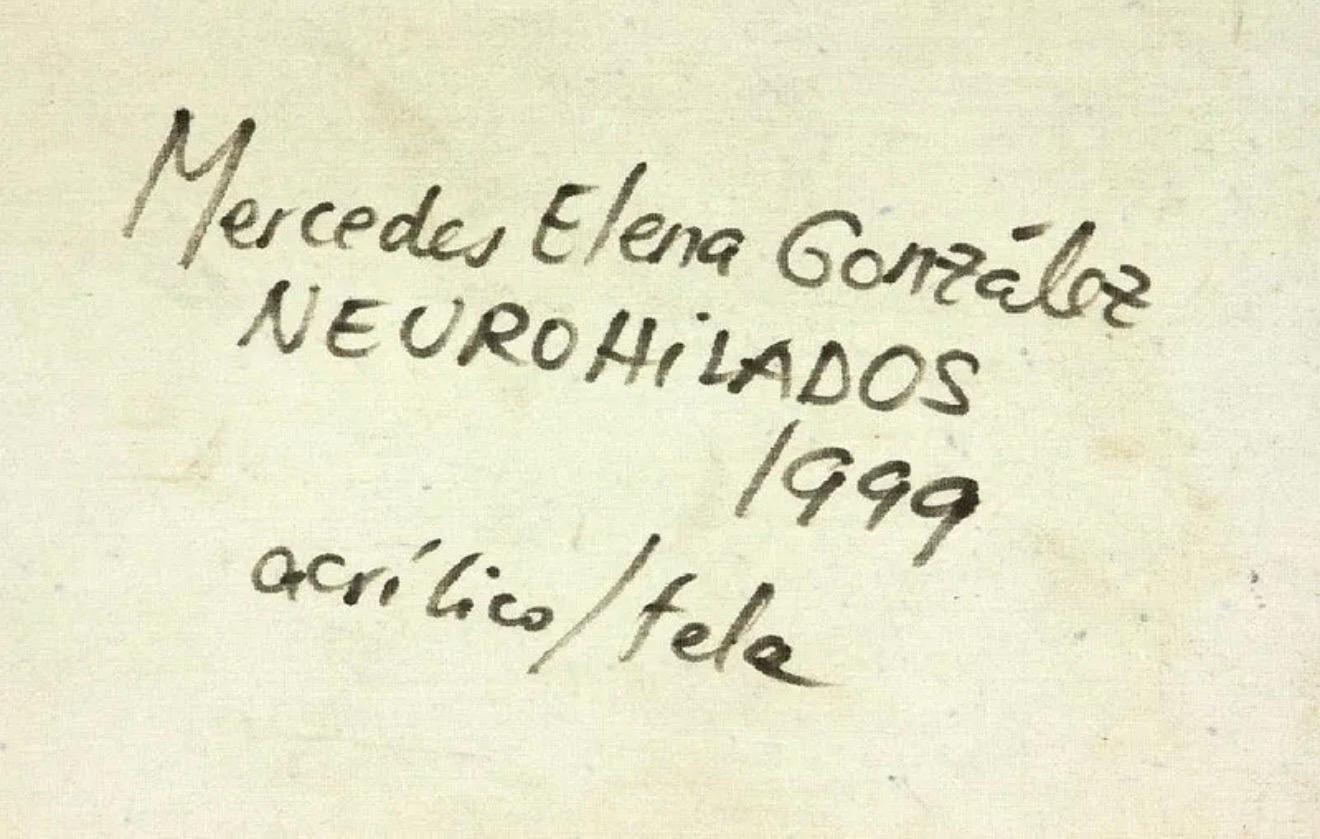 Mercedes Elena González
NEUROHiLADOS
1999
acrílico/tela